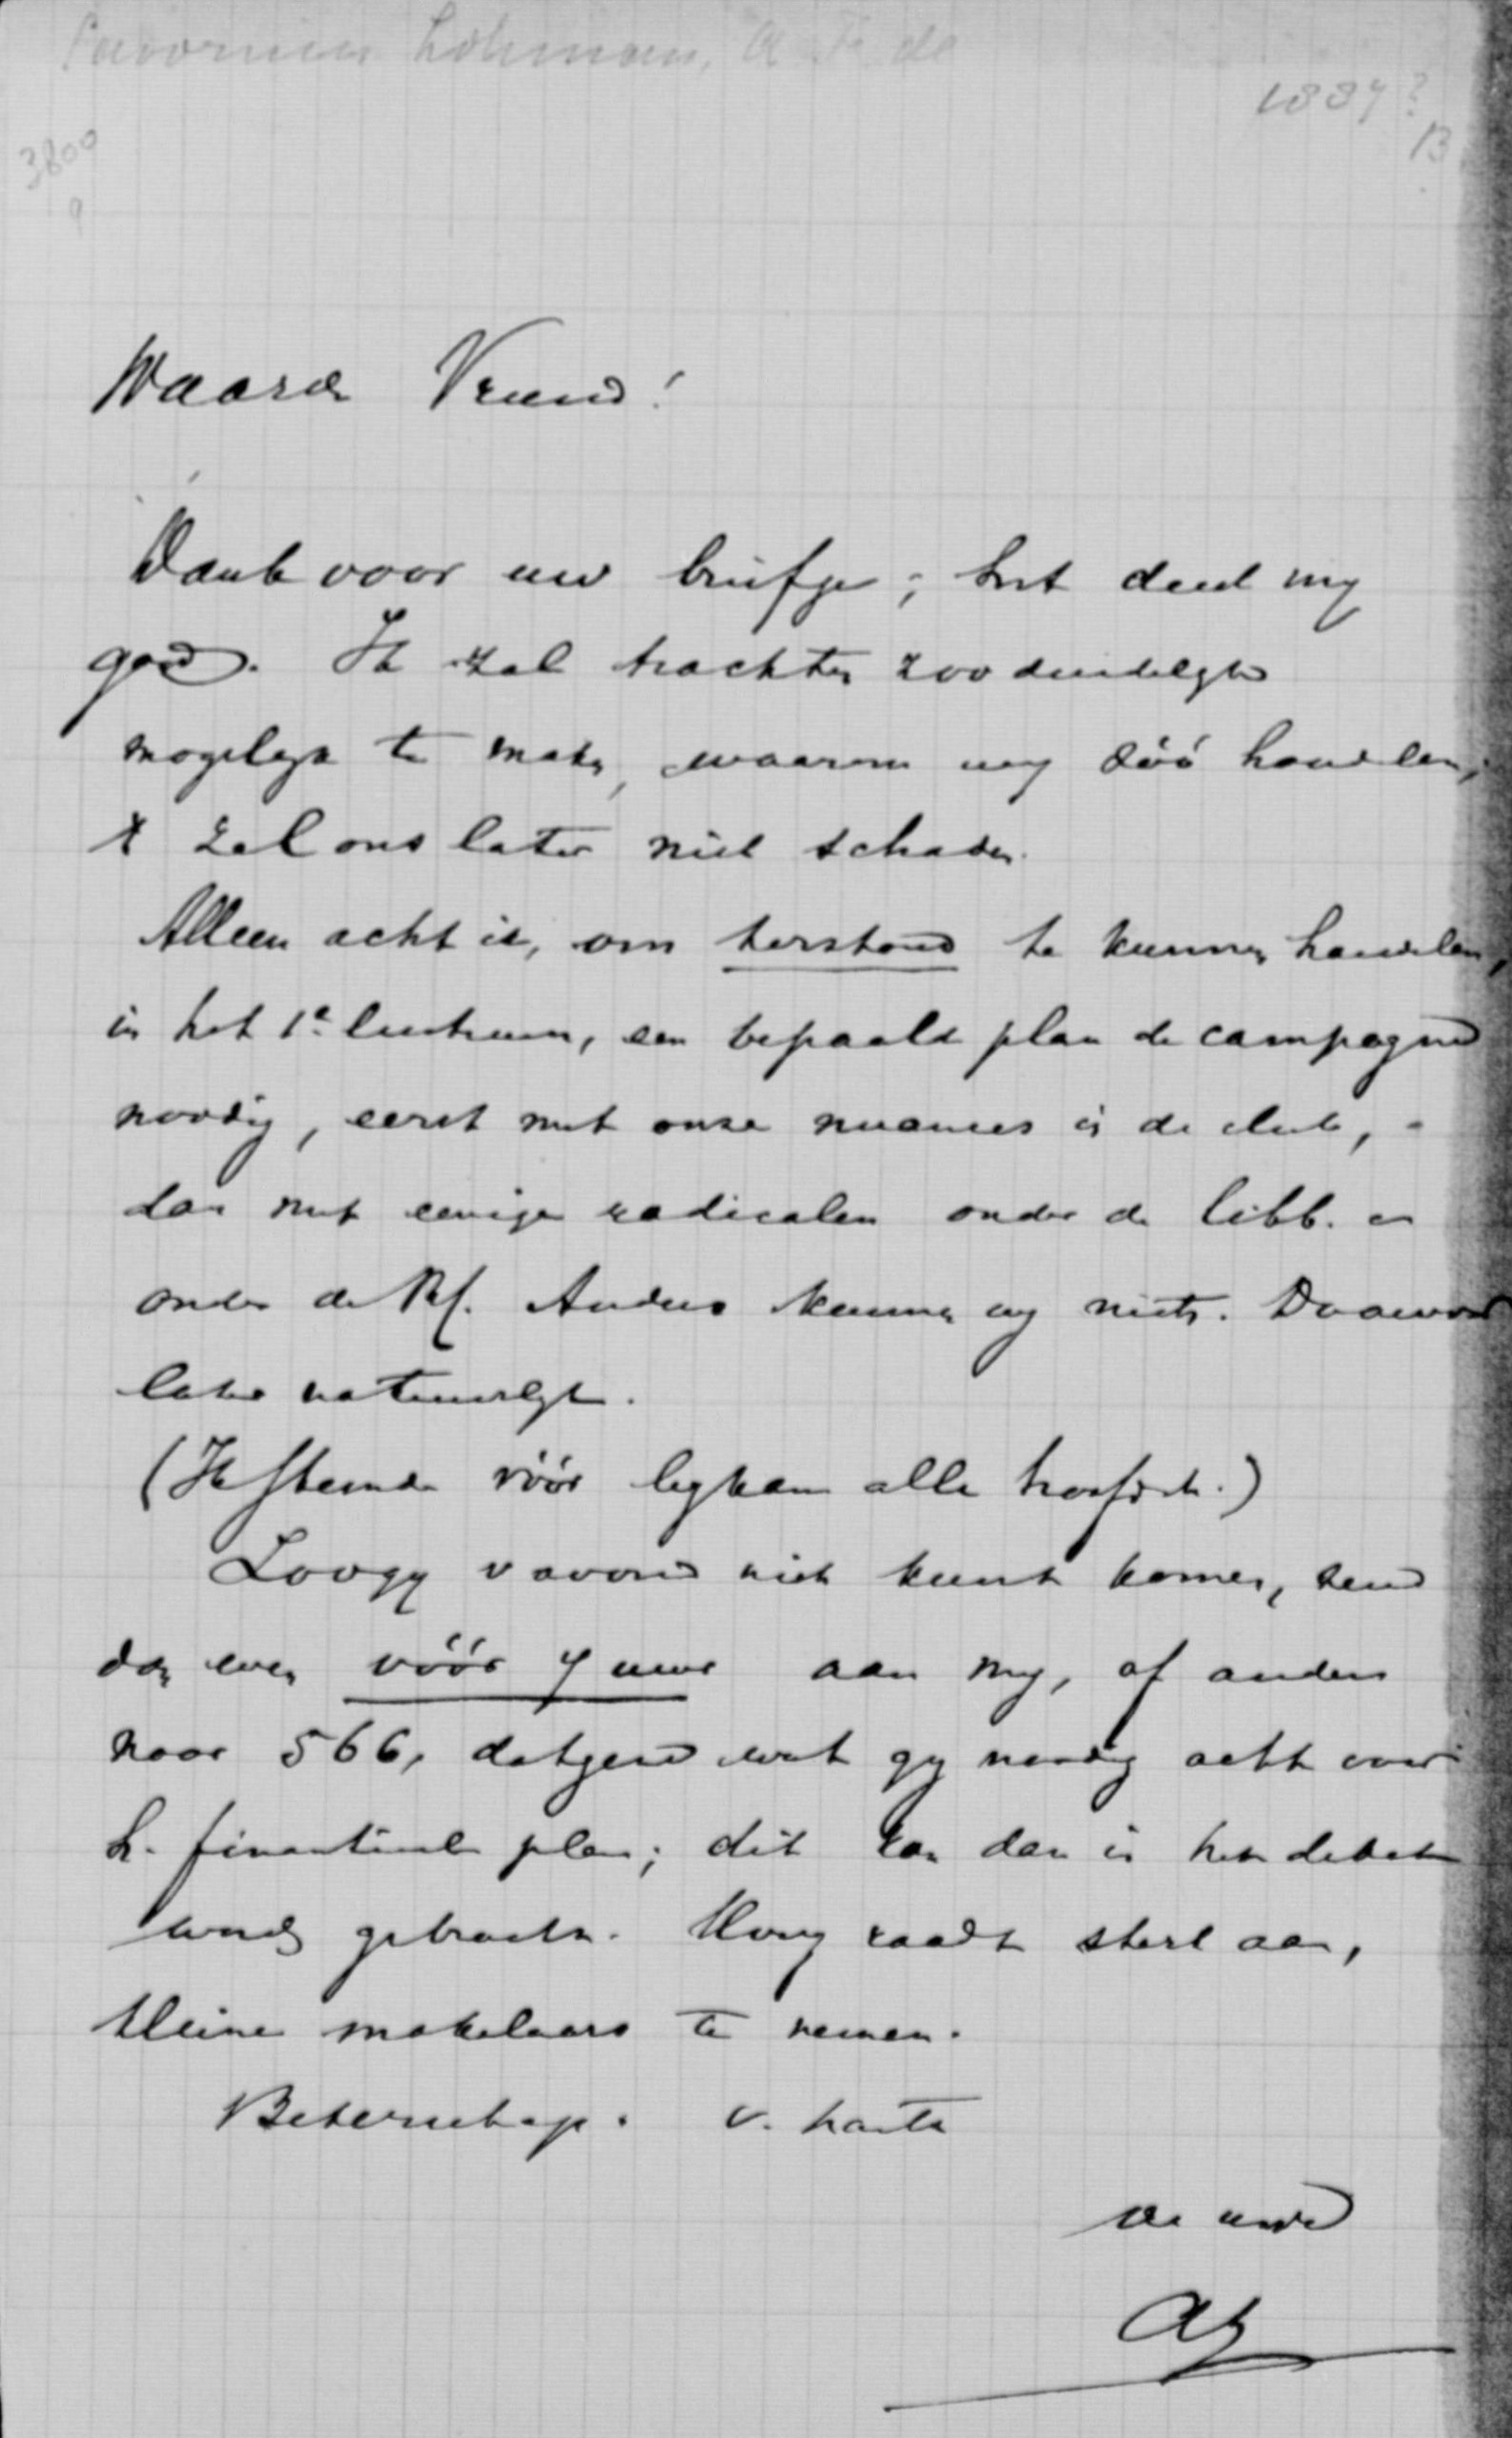 Savornin Lohman, A. F. de
1887?
B
3800
9
Waarde Vriend!
Dank voor uw briefje; het deed mij
goed. Ik zal trachten zoo duidelijk
mogelijk te maken, waarom wij zóó handelen;
't zal ons later niet schaden.
Alleen acht ik, om terstond te kunnen handelen,
in het 1e lustrum, een bepaald plan de campagne
noodig, eerst met onze nuances in de club,
dan met eenige radicalen onder de libb. en
onder de RK. Anders kunnen wij niets. Daarover
later natuurlijk.
(Ik stemde vóór bijkans alle )
Zoo gij v avond niet kunt komen, zend
dan even vóór 7 uur aan mij, of anders
naar 566, datgene wat gij noodig acht over
h. financieel plan; dit kan dan in het debat
word gebracht. Hovy raadt sterk aan,
kleine makelaars te nemen.
Beterschap. v. harte
de uwe
AL